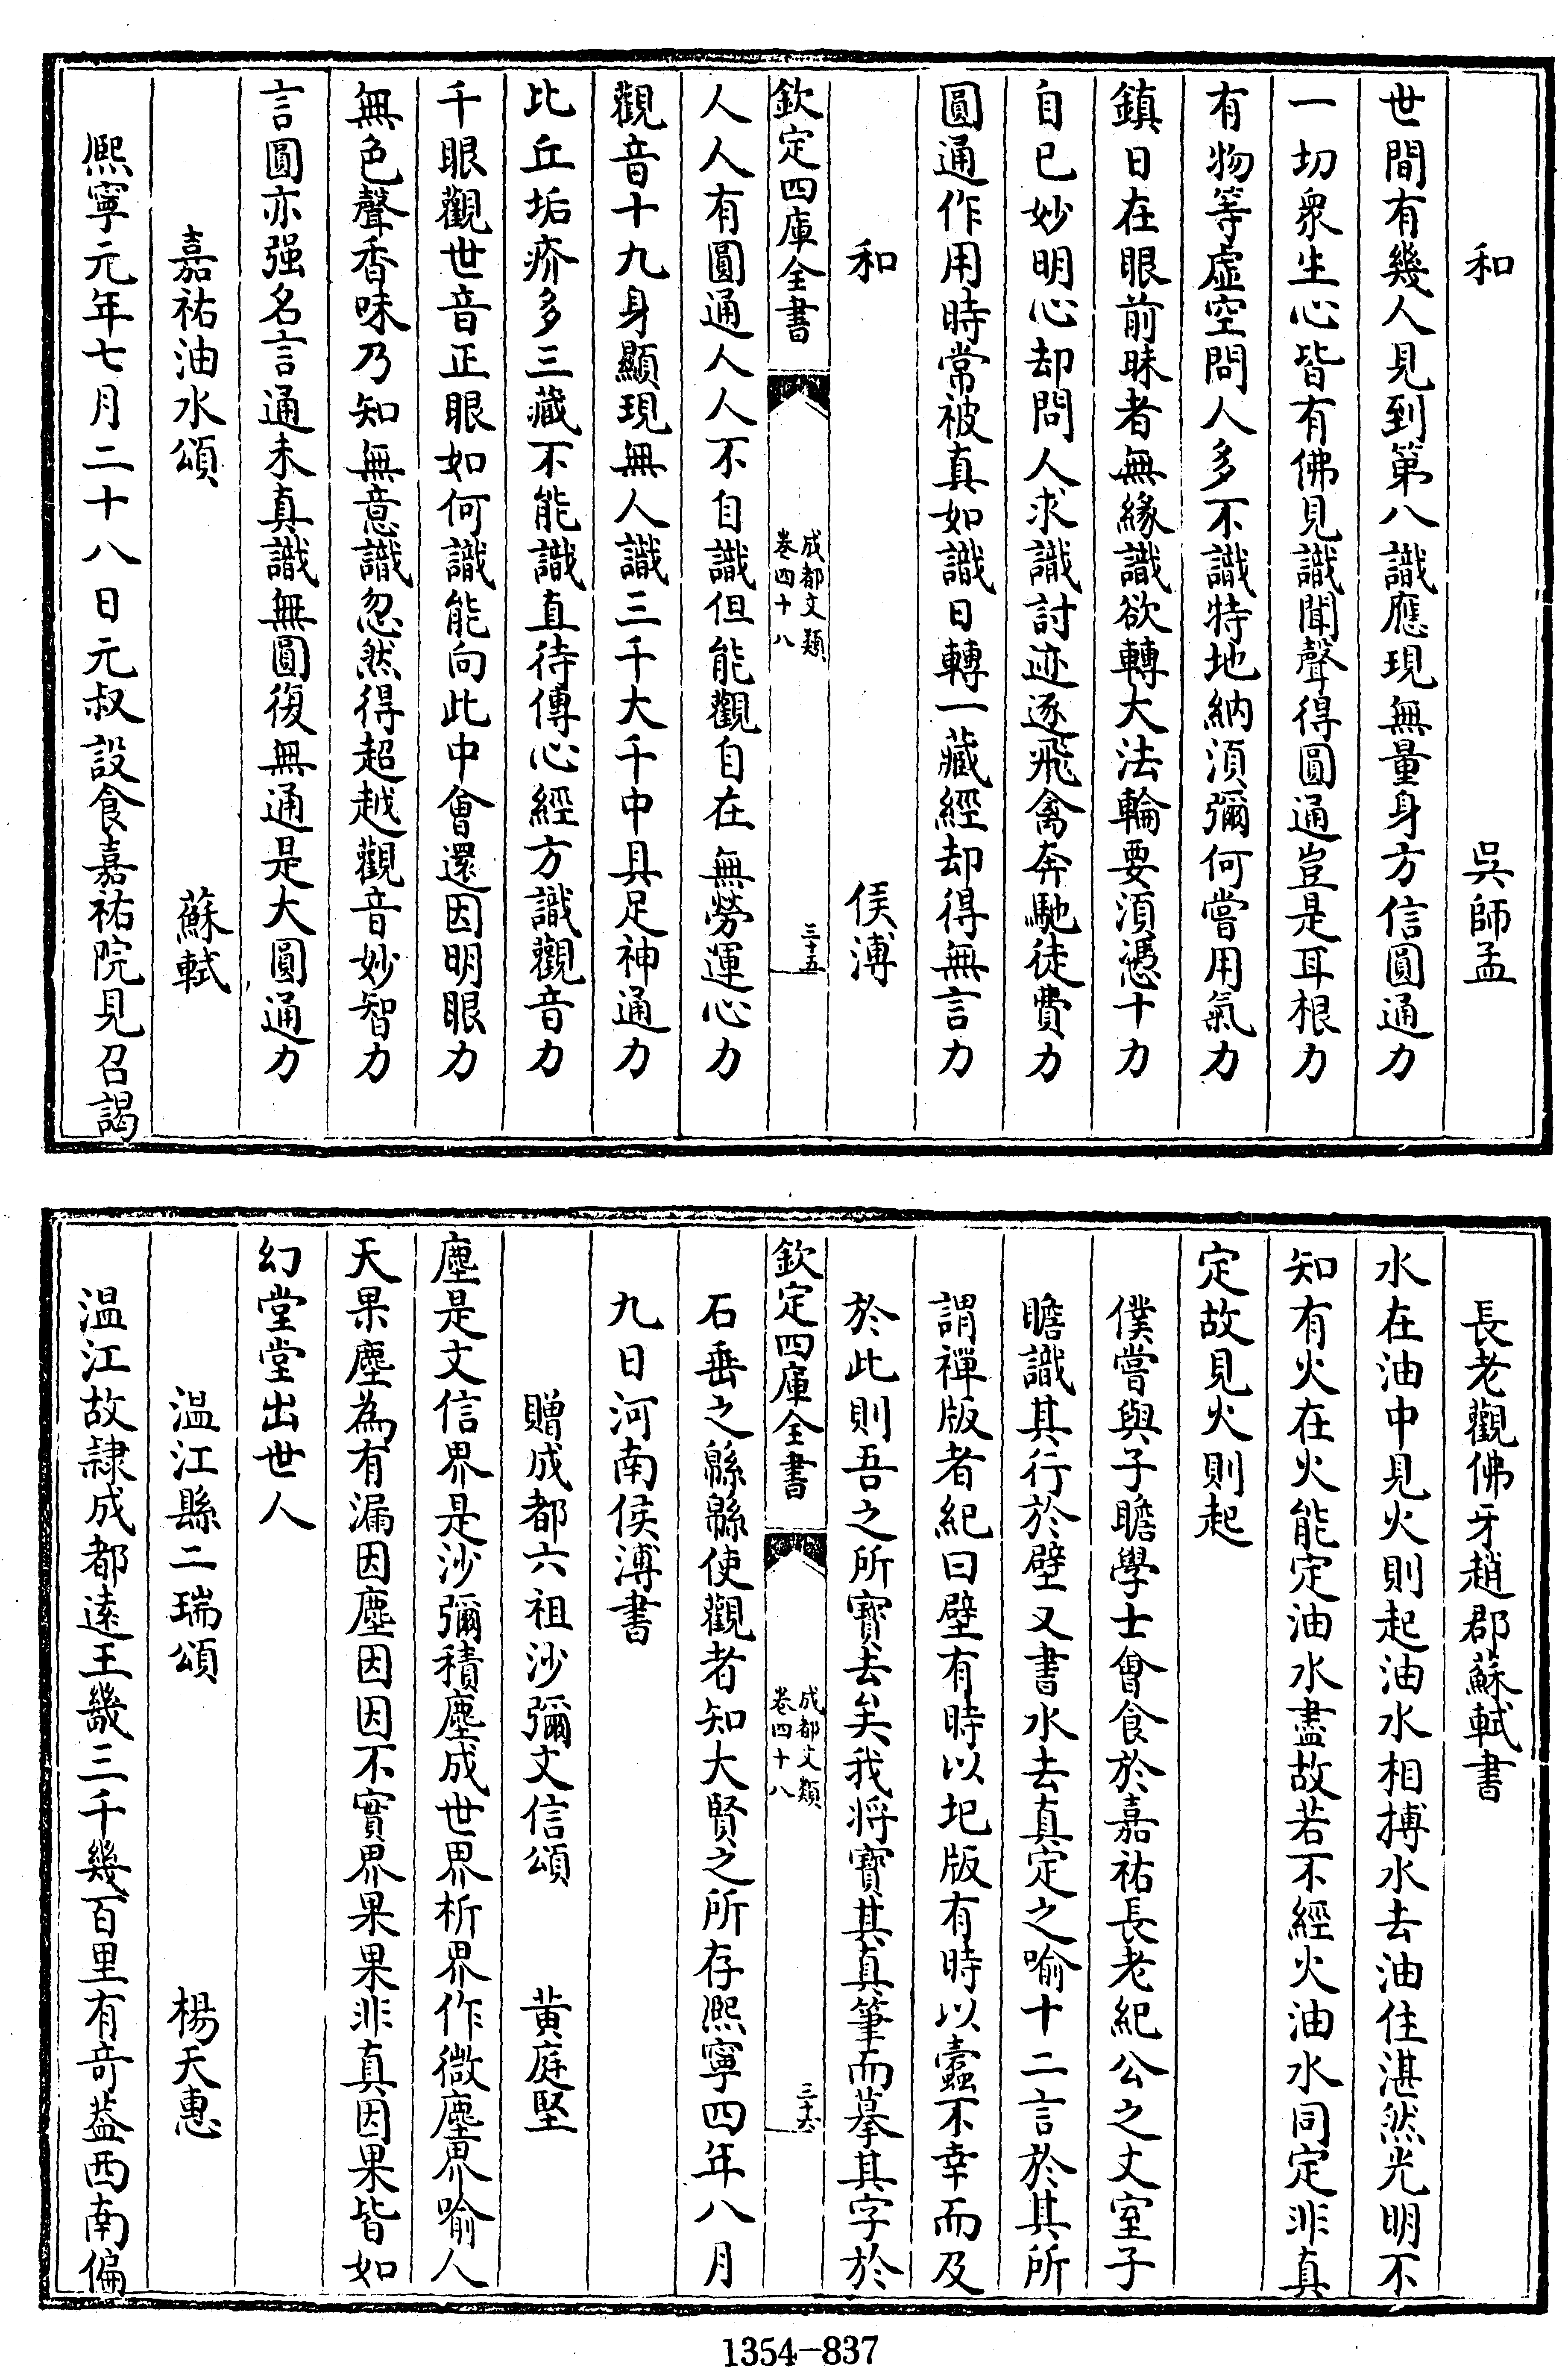 和　吳師孟
世間有幾人見到第八識應現無量身方信圓通力
一切衆生心皆有佛見識聞聲得圓通豈是耳根力
有物等虛空問人多不識特地納須彌何嘗用氣力
鎮日在眼前昧者無緣識欲轉大法輪要須憑十力
自已妙明心却問人求識討迹逐飛禽奔馳徒費力
圓通作用時常被真如識日轉一藏經却得無言力
和　侯溥
欽定四庫全書　成都文類卷四十八　三十五
人人有圓通人人不自識但能觀自在無勞運心力
觀音十九身顯現無人識三千大千中具足神通力
比丘垢疥多三藏不能識直待傳心經方識觀音力
千眼觀世音正眼如何識能向此中會還因明眼力
無色聲香味乃知無意識忽然得超越觀音妙智力
言圓亦强名言通未真識無圓復無通是大圓通力
嘉祐油水頌　蘇軾
熈寧元年七月二十八日元叔設食嘉祐院見召謁
長老觀佛牙趙郡蘇軾書
水在油中見火則起油水相搏水去油住湛然光明不
知有火在火能定油水盡故若不經火油水同定非真
定故見火則起
僕嘗與子瞻學士會食於嘉祐長老紀公之丈室子
瞻識其行於壁又書水去真定之喻十二言於其所
謂禪版者紀曰壁有時以圮版有時以蠹不幸而及
於此則吾之所寶去矣我將寶其真筆而摹其字於
欽定四庫全書　成都文類卷四十八　三十六
石垂之緜緜使觀者知大賢之所存熈寧四年八月
九日河南侯溥書
贈成都六祖沙彌文信頌　黄庭堅
塵是文信界是沙彌積塵成世界析界作微塵界喻人
天果塵為有漏因塵因因不實界果果非真因果皆如
幻堂堂出世人
温江縣二瑞頌　楊天惠
温江故隸成都逺王畿三千幾百里有竒葢西南偏
1354—837